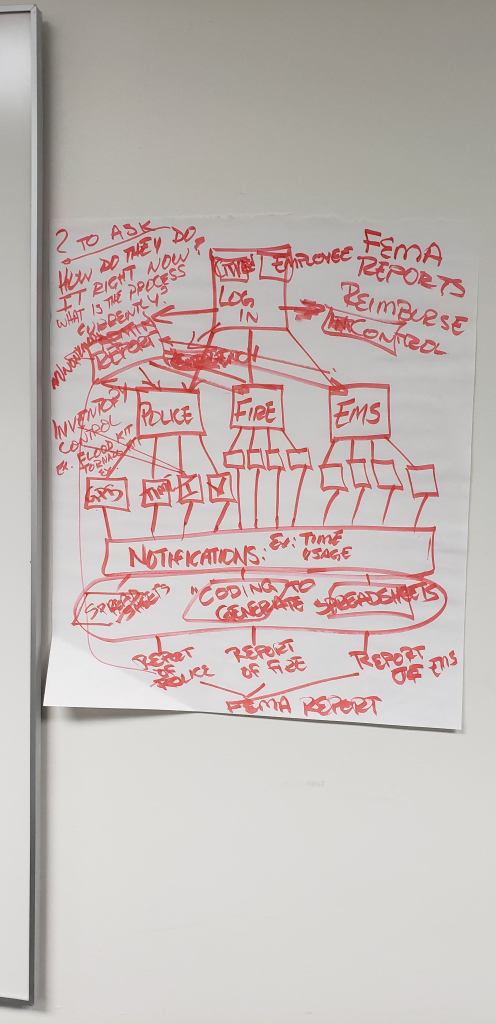 ? TO ASK
HOW DO THEY DO
IT RIGHT NOW?
WHAT IS THE PROCESS
CURRENTLY?
EMPLOYEE
LOG
IN
FEMA
REPORTS
REIMBURSE
CONTROL
REPORT
INVENTORY
CONTROL
EX. FLOOD KIT
TORNADO
POLICE
FIRE
EMS
GPS
NOTIFICATIONS: EX: TIME
USAGE
"CODING" TO
GENERATE
SPREADSHEETS
REPORT
OF
POLICE
REPORT
OF FIRE
REPORT
OF EMS
FEMA REPORT